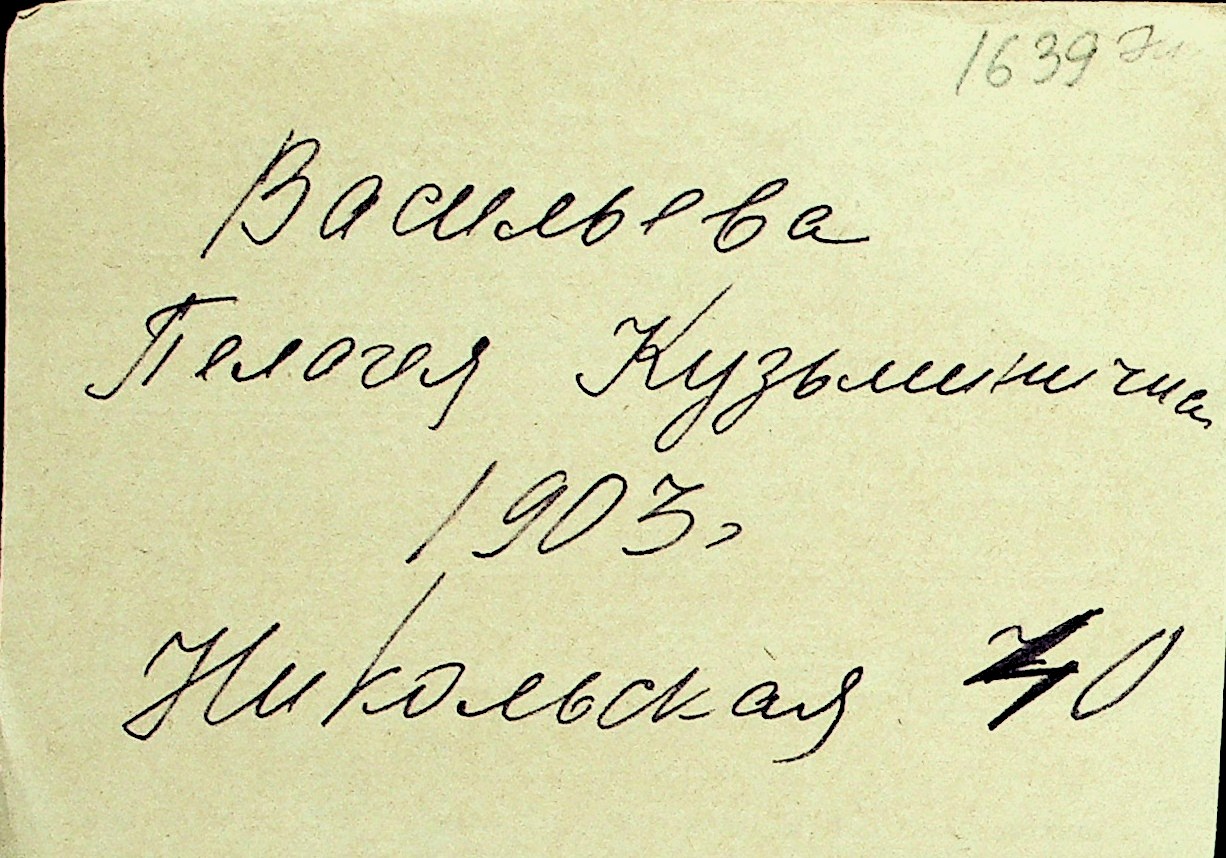 1639
Васильева
Пелагея Кузьминична
1903г
Никольская 40